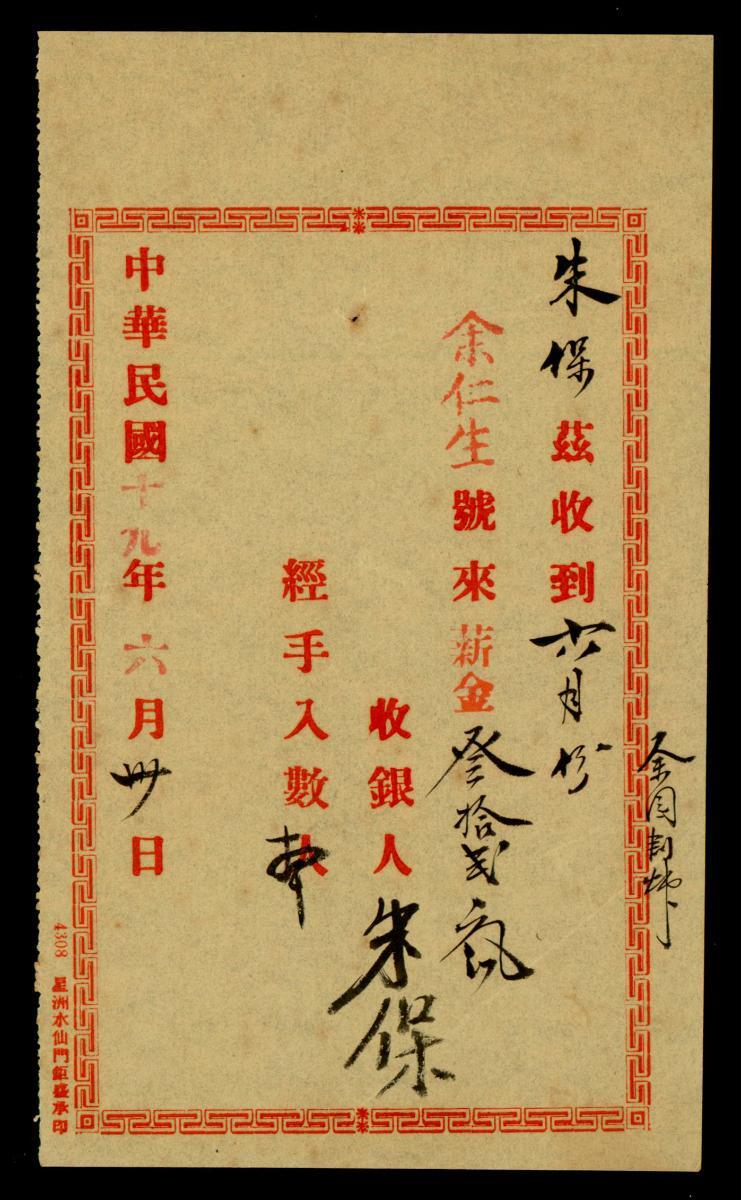 余園
朱保茲收到六月份
余仁生號來薪金叄拾弍
收銀人朱保
經手入數人
中華民國十九年六月卅日
4308 星洲水仙門鉅盛承印